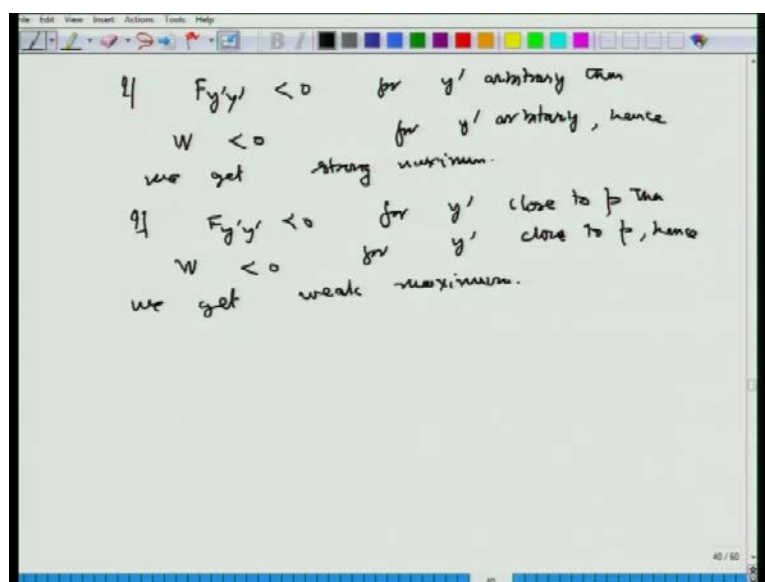 File Edit View Insert Actions Tools Help
If Fy'y' < 0 for y' arbitrary then
W < 0 for y' arbitrary, hence
we get strong maximum.
If Fy'y' < 0 for y' close to p then
W < 0 for y' close to p, hence
we get weak maximum.
40/60